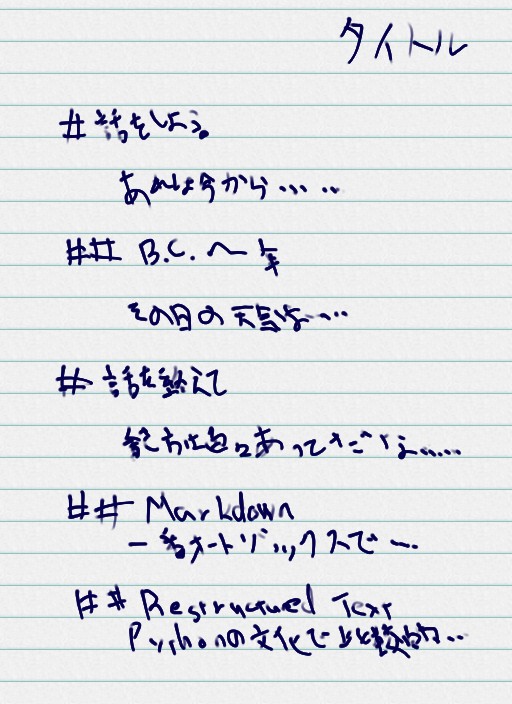 タイトル
# 話をしよう。
あれは今から‥‥‥
## B.C.〜年
その日の天気は‥‥
# 話を整えて
## Markdown
一番オートドックスで‥‥
## Restructured Text
Pythonの文化で比較的‥